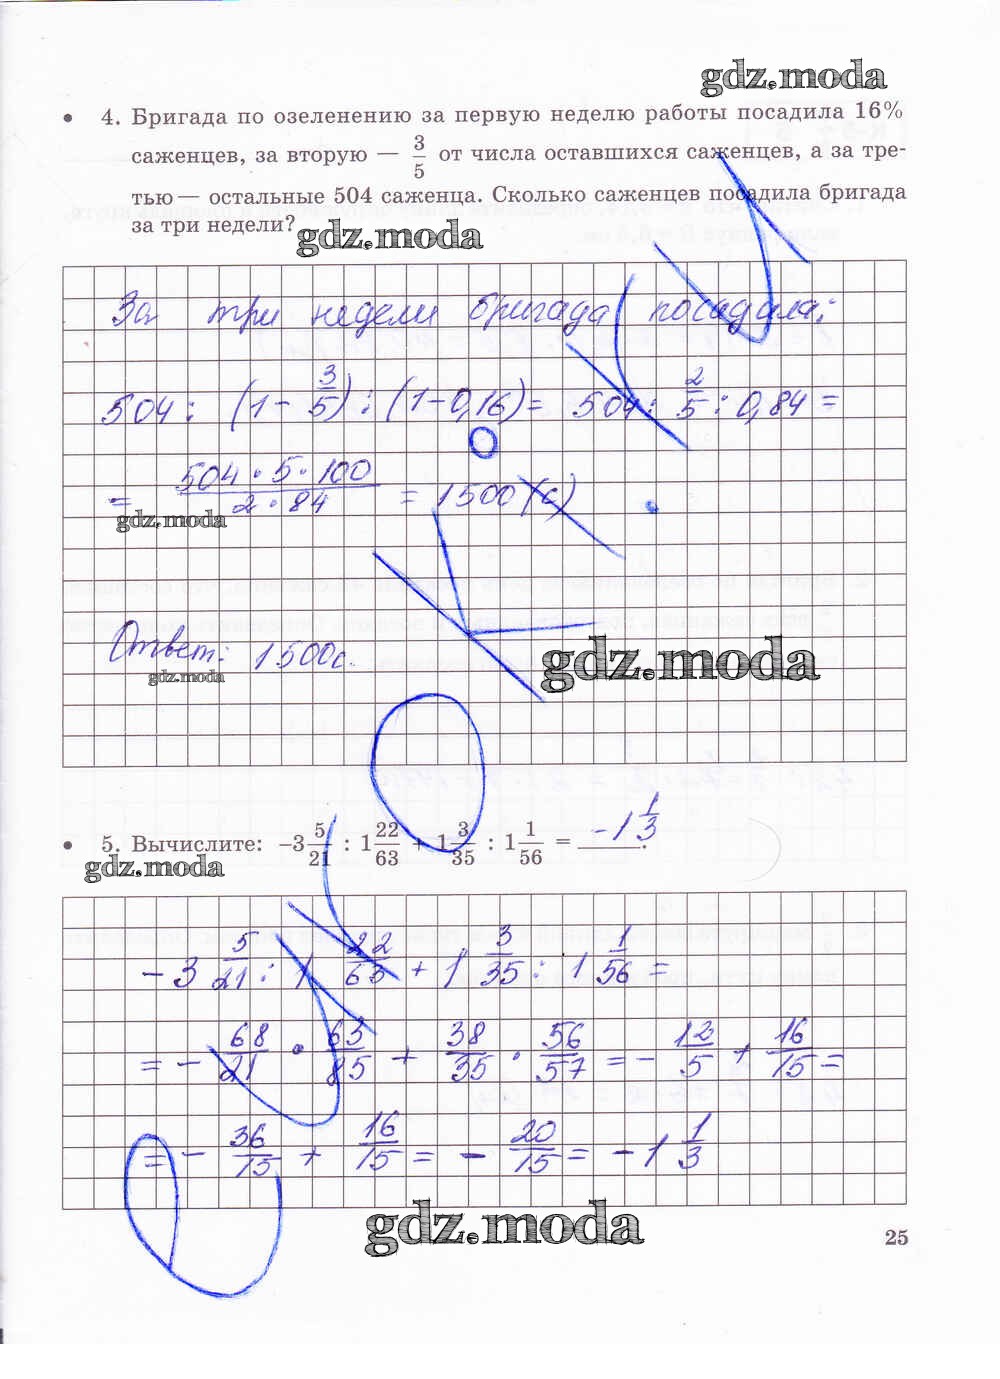 gdz.moda
4. Бригада по озеленению за первую неделю работы посадила 16%
саженцев, за вторую — 3/5 от числа оставшихся саженцев, а за тре-
тью — остальные 504 саженца. Сколько саженцев посадила бригада
за три недели?
gdz.moda
За три недели бригада посадила:
504 : (1 - 3/5) : (1 - 0,16) = 504 : 2/5 : 0,84 =
= 504 · 5 · 100 / 2 · 84 = 1500 (с)
gdz.moda
Ответ: 1500с.
gdz.moda
gdz.moda
5. Вычислите: –3 5/21 : 1 22/63 + 1 3/35 : 1 1/56 = -1 1/3.
gdz.moda
- 3 5/21 : 1 22/63 + 1 3/35 : 1 1/56 =
= - 68/21 · 63/85 + 38/35 · 56/57 = - 12/5 + 16/15 =
= - 36/15 + 16/15 = - 20/15 = - 1 1/3
gdz.moda
25